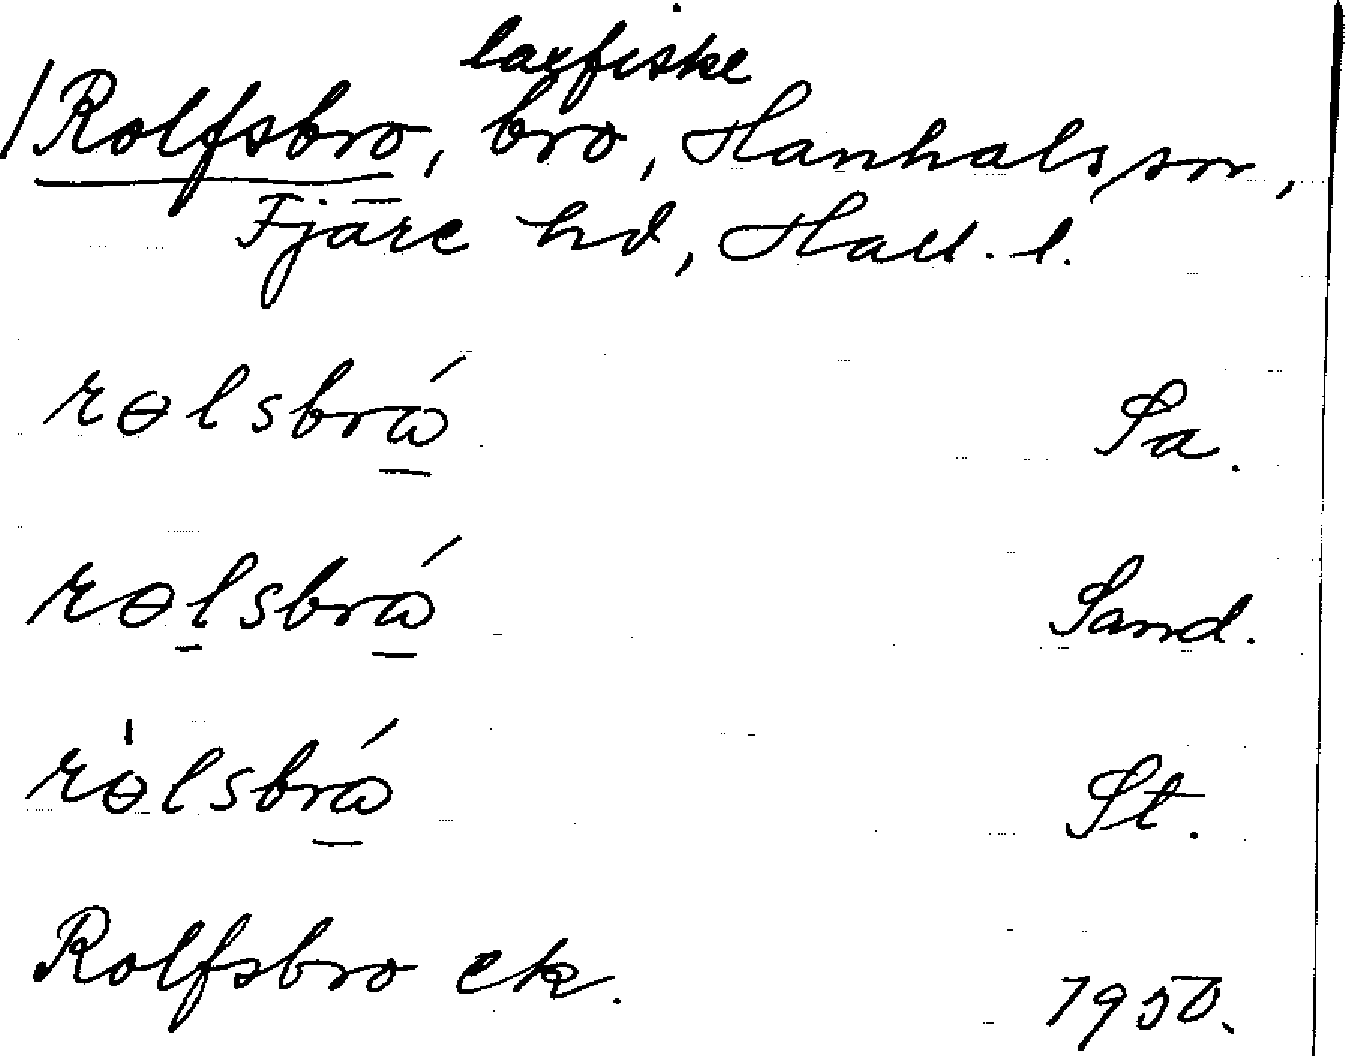 laxfiske
/Rolfsbro, bro, Hanhals sn,
Fjäre hd, Hall. l.
rɵlsbrá Sa.
rɵlsbrá Sand.
rɵ̍lsbrá St.
Rolfsbro ek. 1950.